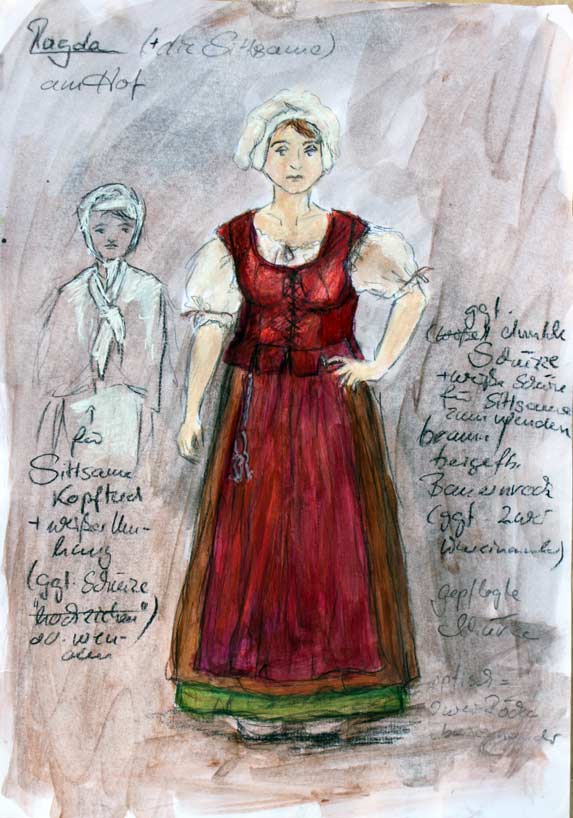 Magda (+ die Sittsame)
am Hof
für
Sittsame
Kopftuch
+ weißer Um-
hang
(ggf. Schürze
"hochziehen")
od. wen-
den
ggf.
dunkle
Schürze
+ weiße Schürze
für Sittsame
zum wenden
braun
Bauernrock
(ggf. zwei
übereinander)
gepflegte
optisch =
zwei Röcke